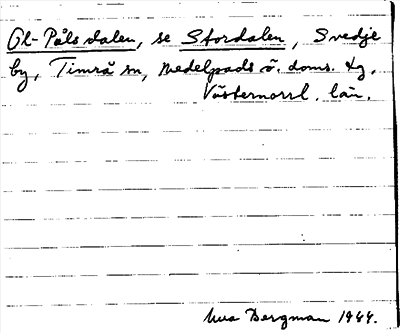 Ol-Pålsdalen, se Stordalen, Svedje
by, Timrå sn, Medelpads ö. doms. tg,
Västernorrl. län.
Moa Bergman 1944.